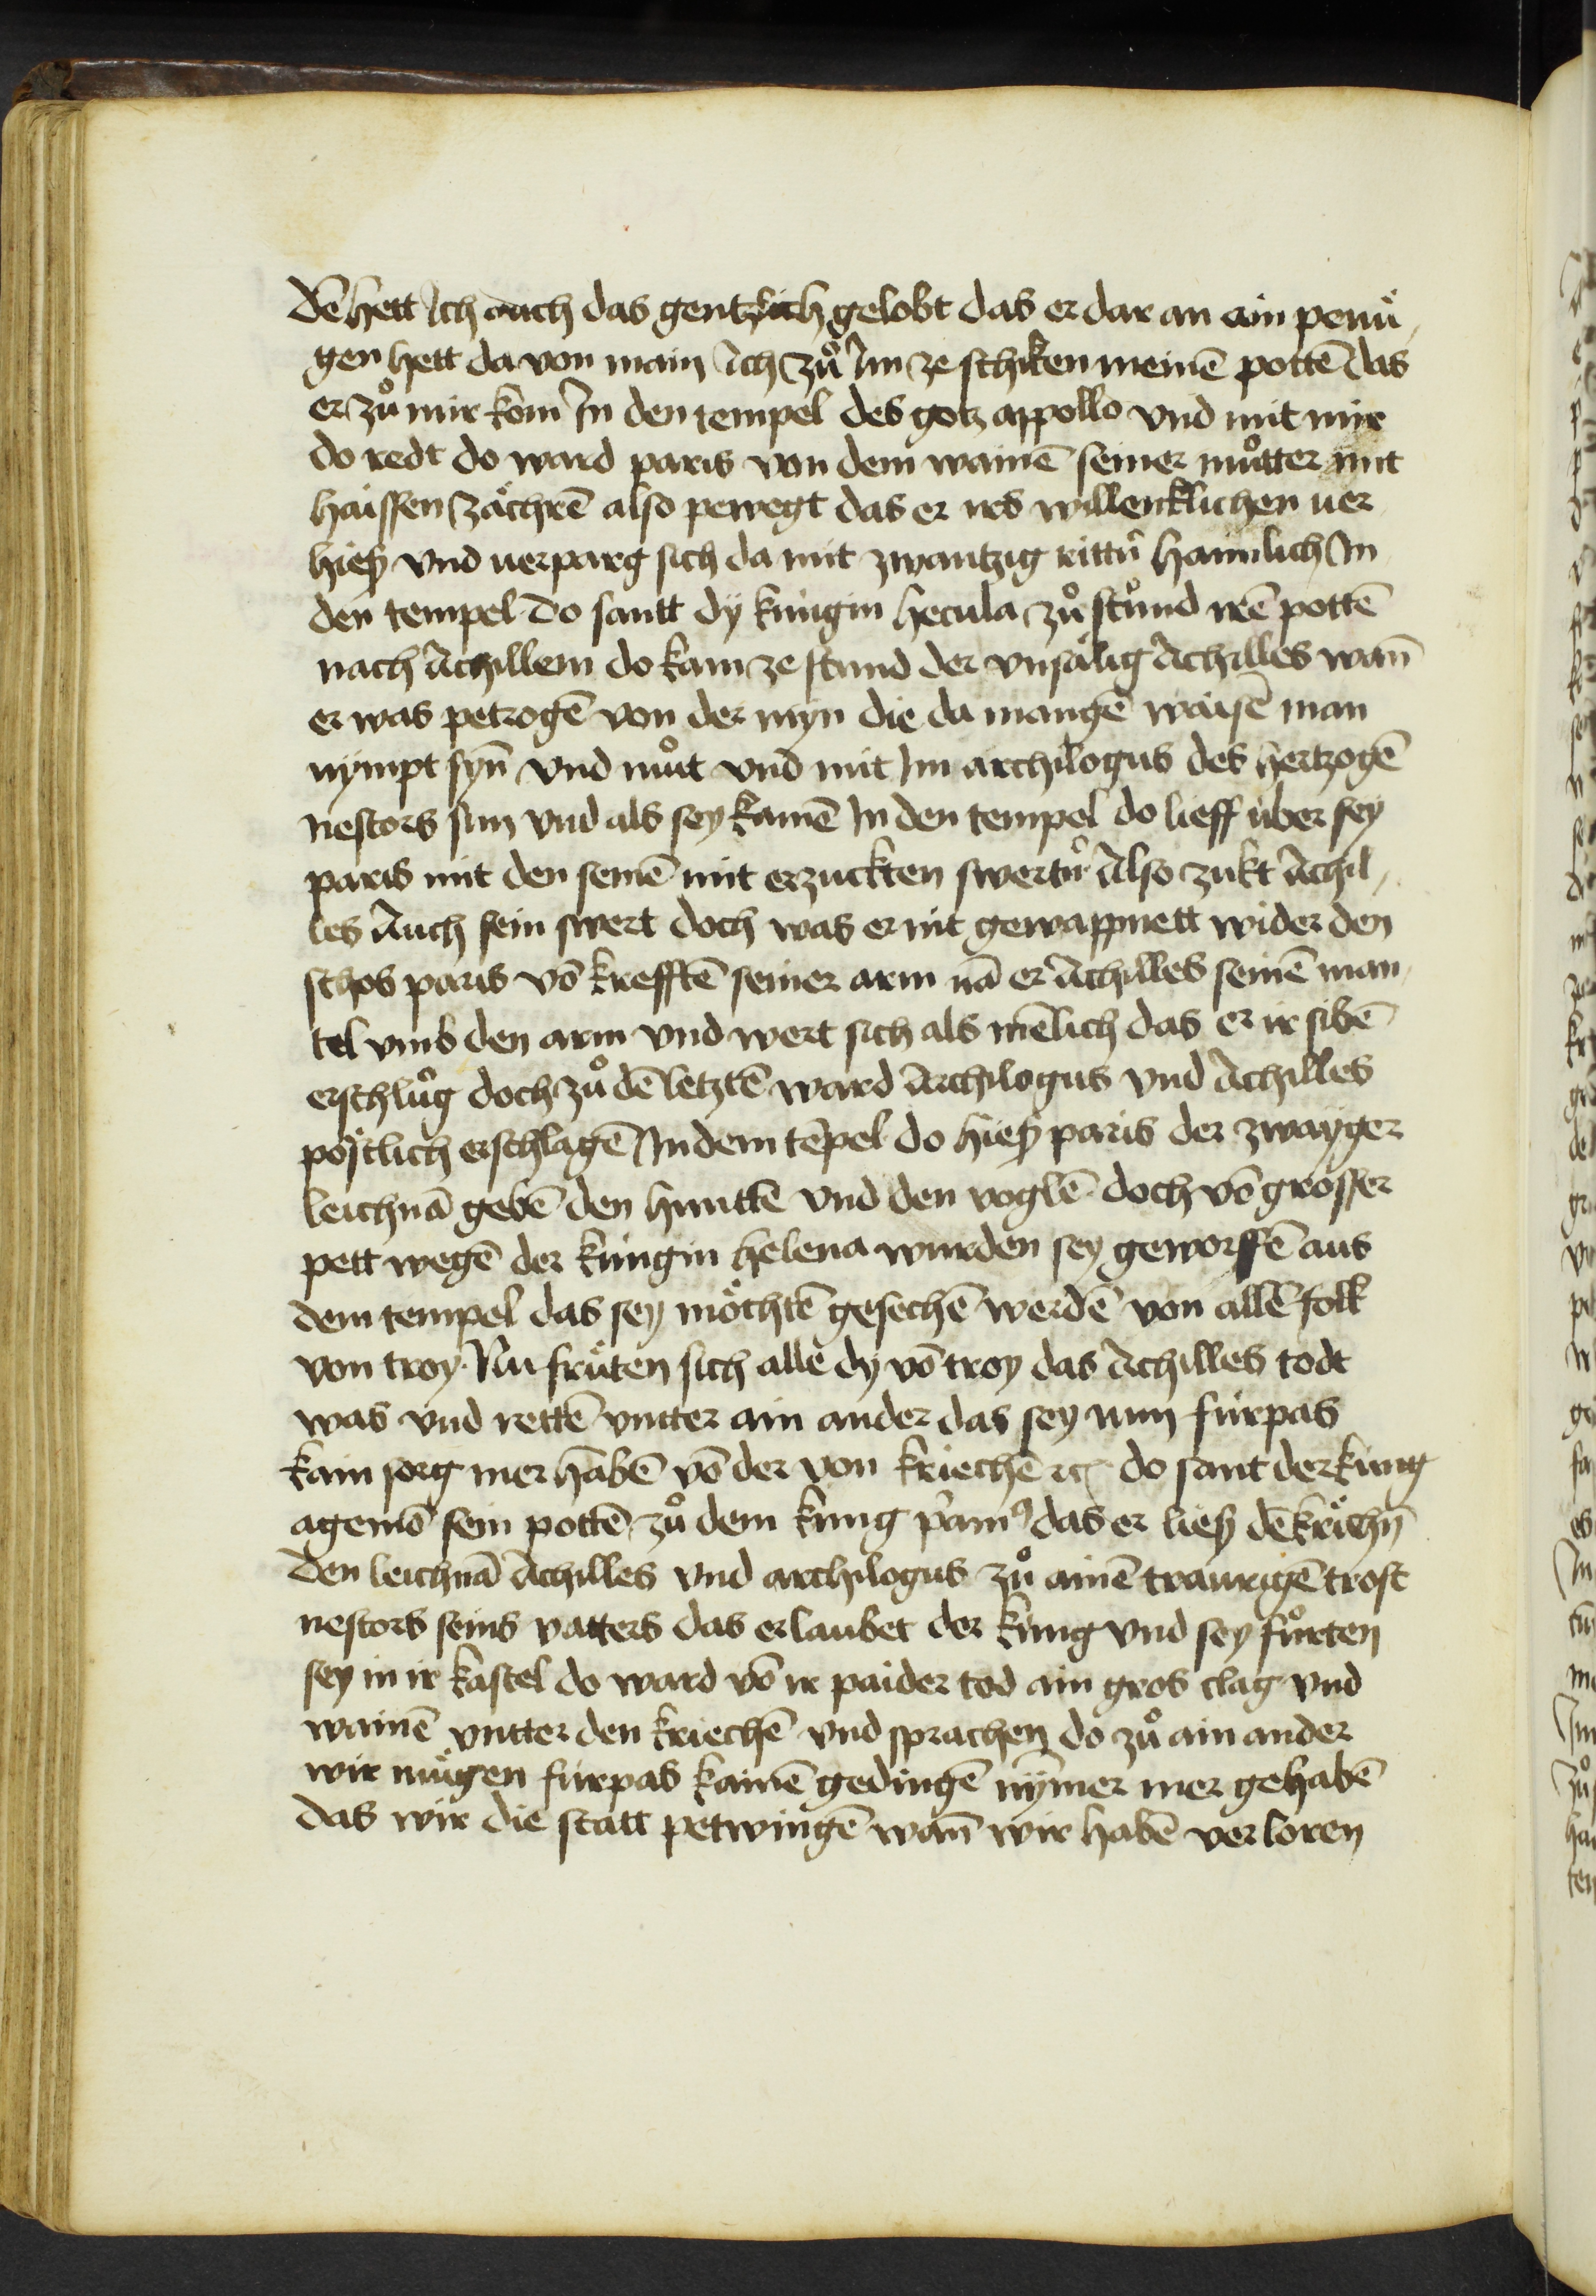 dē hett Ich auch das gentzlich gelobt das er dar an ain penuͤ
gen hett da von main Ich zuͦ Im ze schiken meinē pottē das
er zuͦ mir kom In den tempel des gotz appollo vnd mit mir
do redt do ward paris von dem wainē seiner muͦtter mit
haissen zaͤchrē also pewegt das er irs willencklichen uer
hieß vnd uerparg sich da mit zwantzig rittrn haimlich In
den tempel do santt dÿ kungin hecula zuͦ stund irē pottē
nach Achillem do kam ze stund der vnsaͤlig Achilles wan̄
er was petrogē von der myn die da mangē waisē man
nympt syn̄ vnd muͦt vnd mit Im archilogus des hertzogē
nestors sun vnd als sey kamē In den tempel do lieff uber sey
paris mit den seinē mit erzuckten swertrn Also zukt Achil
les Auch sein swert doch was er nit gewappnett wider den
schos paris vō krefftē seiner arm nā er Achilles seinē man
tel vmb den arm vnd wert sich als mēlich das er ir sibē
erschluͦg doch zuͦ dē letztē ward Archilogus vnd Achilles
poͤstlich erschlagē In dem tēpel do hieß paris der zwayger
leichnā gebē den huntē vnd den voglē doch vō grosser
pett wegē der kungin helena wurden sey geworffē aus
dem tempel das sey moͤchtē gesechē werdē von allē folk
von troy Nu fruͤten sich alle dy vō troy das Achilles todt
was vnd rettē vntter ain ander das sey nun furpas
kain sorg mer habē vō der von kriechē etc do sant der kung
agemō sein pottē zuͦ dem kung pam9 das er ließ dē krichn̄
den leichnā Achilles vnd archilogus zuͦ ainē traurigē trost
nestors seins vatters das erlaubet der kung vnd sey fuͦrten
sey in ir kastel do ward vō ir paider tod ain gros clag vnd
wainē vntter den kriechē vnd sprachen do zuͦ ain ander
wir muͤgen furpas kainē gedingē nymer mer gehabē
das wir die statt petwingē wan̄ wir habē verloren